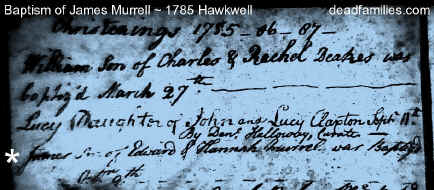 Baptism of James Murrell ~ 1785 Hawkwell
deadfamilies.com
Christenings 1785-86-87-
William Son of Charles & Rachel Deakes was
baptiz'd March 27th
Lucy Daughter of John and Lucy Claxton Septr 11th
By Danl Hellyody, Curate
* James Son of Edward & Hannah Murrel was Baptiz'd
9th